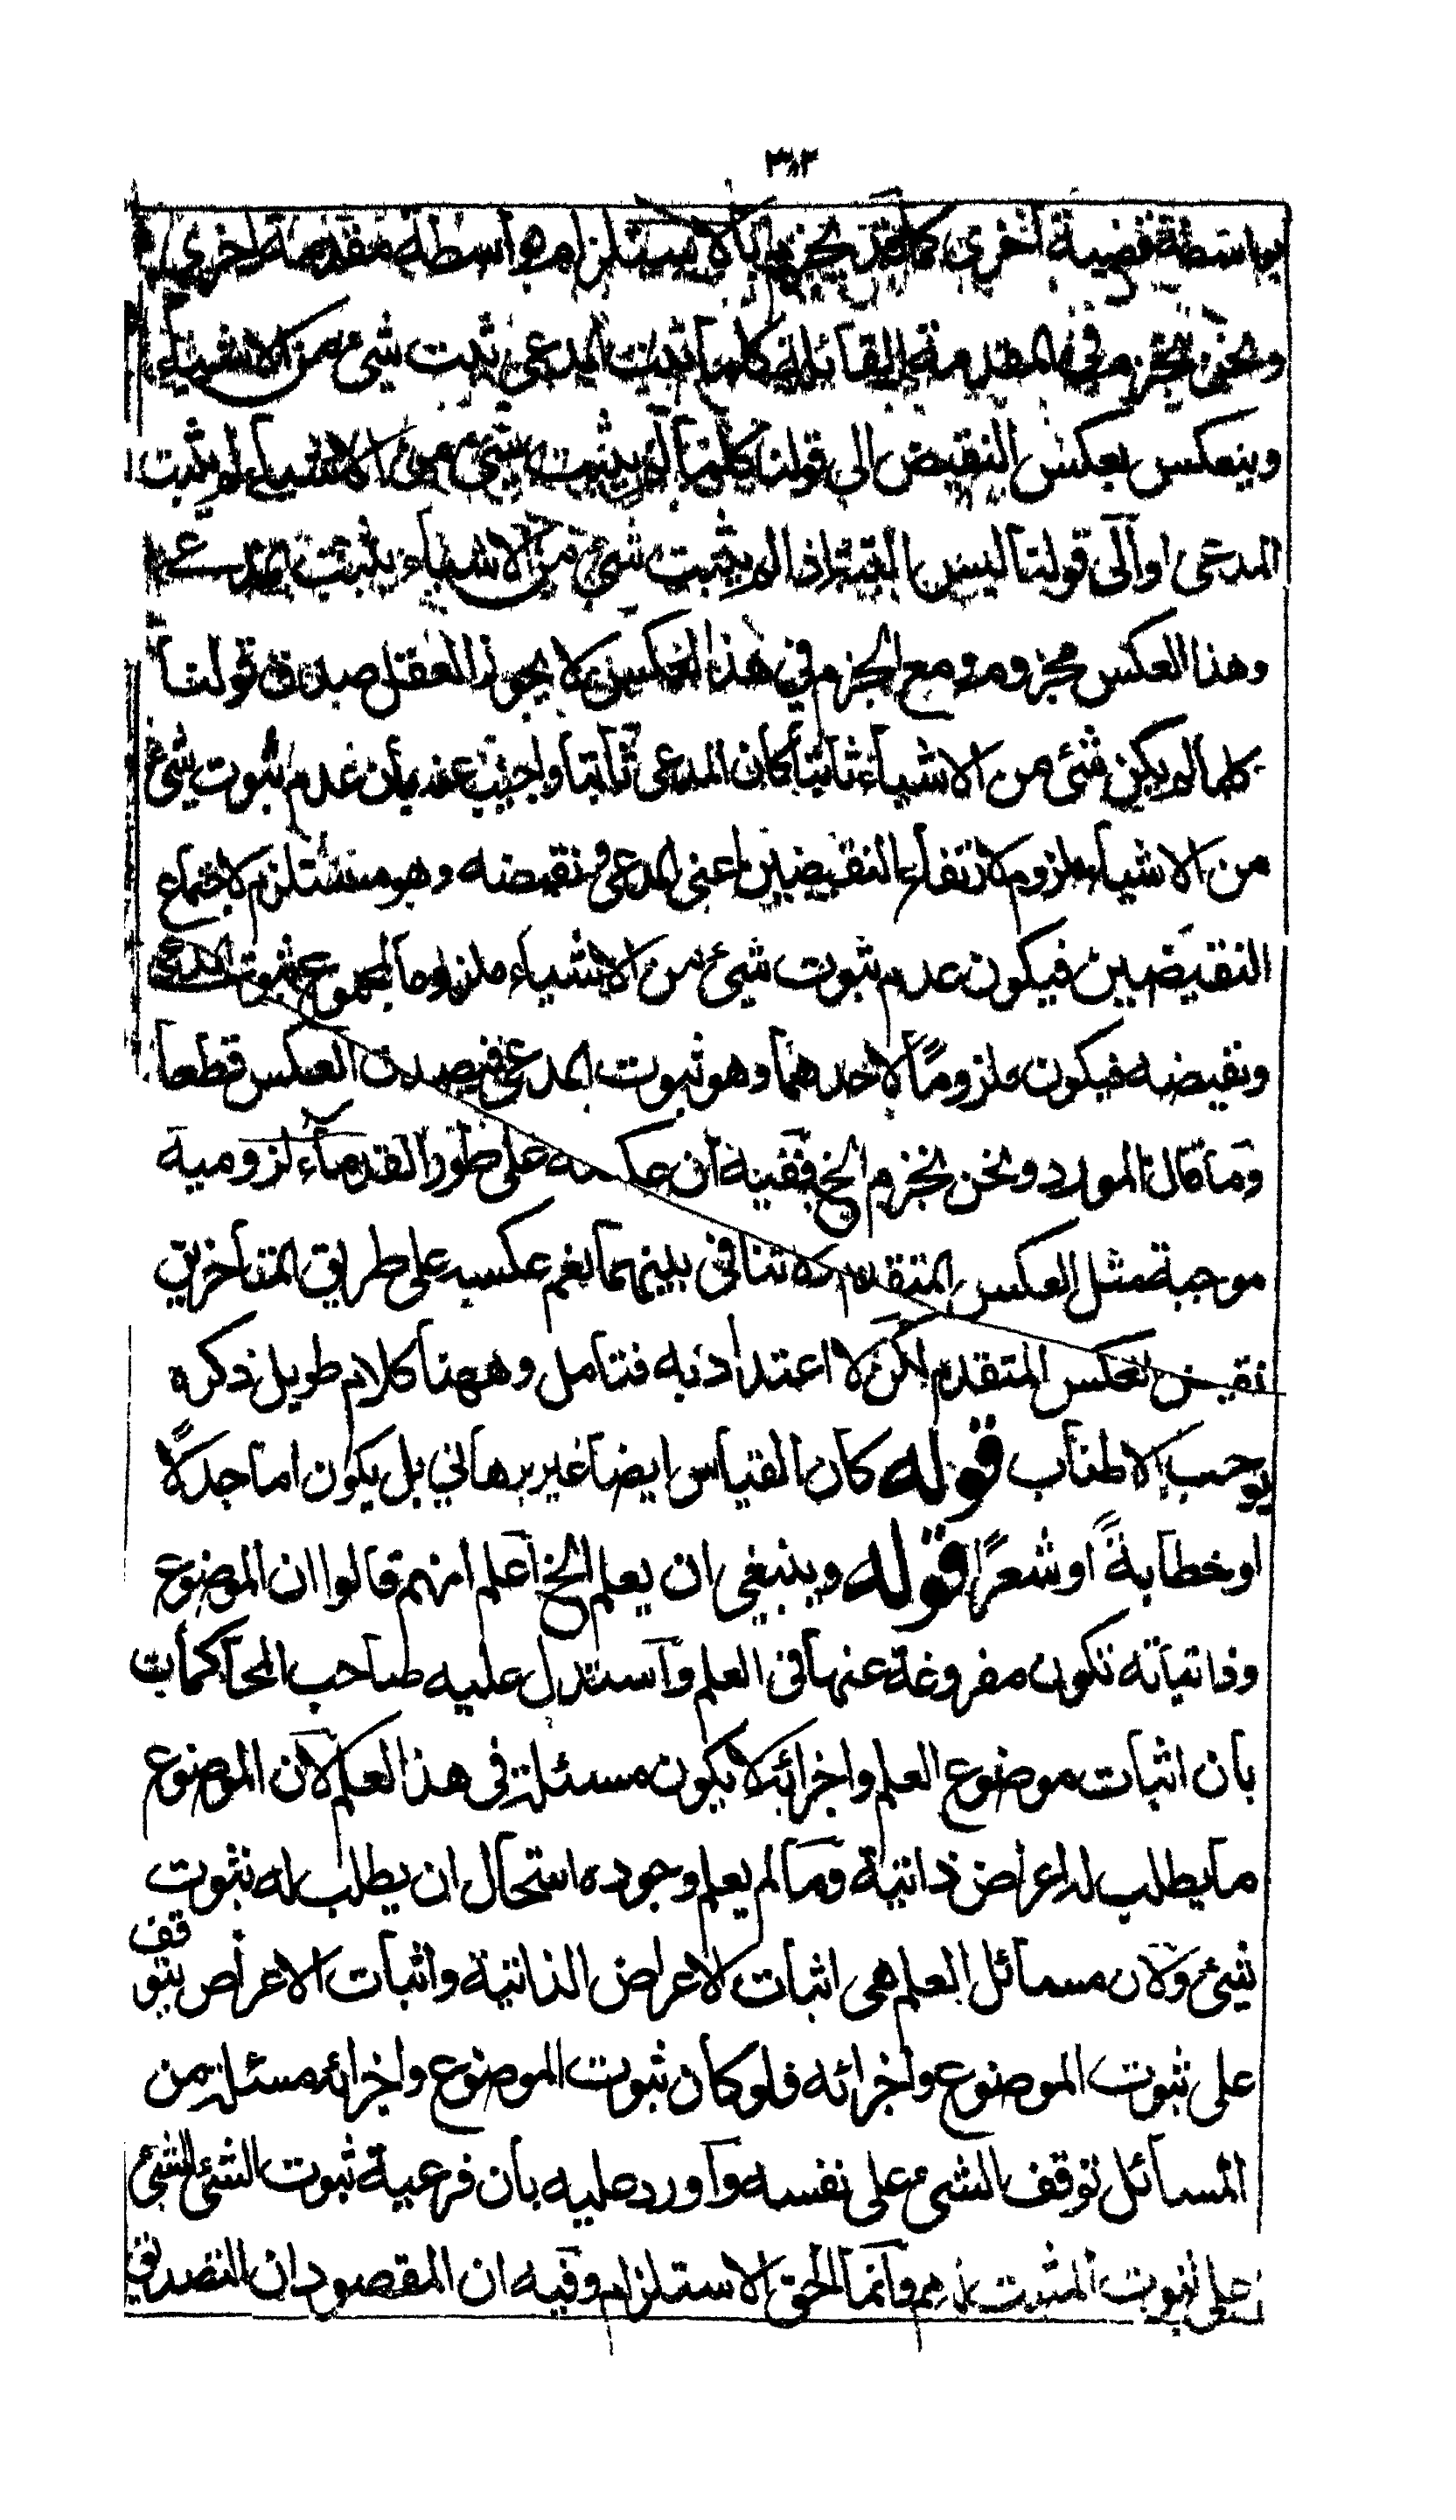 ٣٨٢
بواسطة قضية اخرى كما قد يجزم بالاستلزام بواسطة مقدمة اخرى
ونحن نجزم في المقدمة القائلة كلما ثبت المدعى ثبت شيئ من الاشياء
وينعكس بعكس النقيض الى قولنا كلما لم يثبت شيئ من الاشياء لم يثبت
المدعى اوالى قولنا ليس البتة اذا لم يثبت شيئ من الاشياء يثبت المدعى
وهذا العكس مجزوم ومع الجزم في هذا العكس لا يجوز العقل صدق قولنا
كلما لم يكن شئ من الاشياء ثابتا كان المدعى ثابتا واجيب عنه بان عدم ثبوت شئ
من الاشياء ملزوم لارتفاع النقيضين اعنى المدعى ونقيضه وهو مستلزم لاجتماع
النقيضين فيكون عدم ثبوت شيئ من الاشياء ملزوما لمجموع ثبوت المدعى
ونقيضه فيكون ملزومًا لاحدهما وهو ثبوت المدعى فيصدق العكس قطعا
وما قال المورد ونحن نجزم الخ ففيه ان عكسه على طور القدماء لزومية
موجبة مثل العكس المتقدم لا تنافى بينهما نعم عكسه على طريق المتأخرين
نقيض العكس المتقدم لكن لا اعتداد به فتامل وههنا كلام طويل ذكره
يوجب الاطناب قوله كان القياس ايضا غير برهاني بل يكون اما جدلًا
او خطابةً او شعرًا قوله وينبغي ان يعلم الخ اعلم انهم قالوا ان الموضوع
وذاتياته تكون مفروغة عنها فى العلم واستدل عليه صاحب المحاكمات
بان اثبات موضوع العلم واجزائه لا يكون مسئلة فى هذا العلم لان الموضوع
ما يطلب له اعراض ذاتية وما لم يعلم وجوده استحال ان يطلب له ثبوت
شيئ ولان مسائل العلم هى اثبات الاعراض الذاتية واثبات الاعراض يتوقف
على ثبوت الموضوع واجزائه فلو كان ثبوت الموضوع واجزائه مسئلة من
المسائل توقف الشئ على نفسه واورد عليه بان فرعية ثبوت الشئ لشئ
على ثبوت المثبت له وانما الحق الاستلزام وفيه ان المقصود ان التصديق